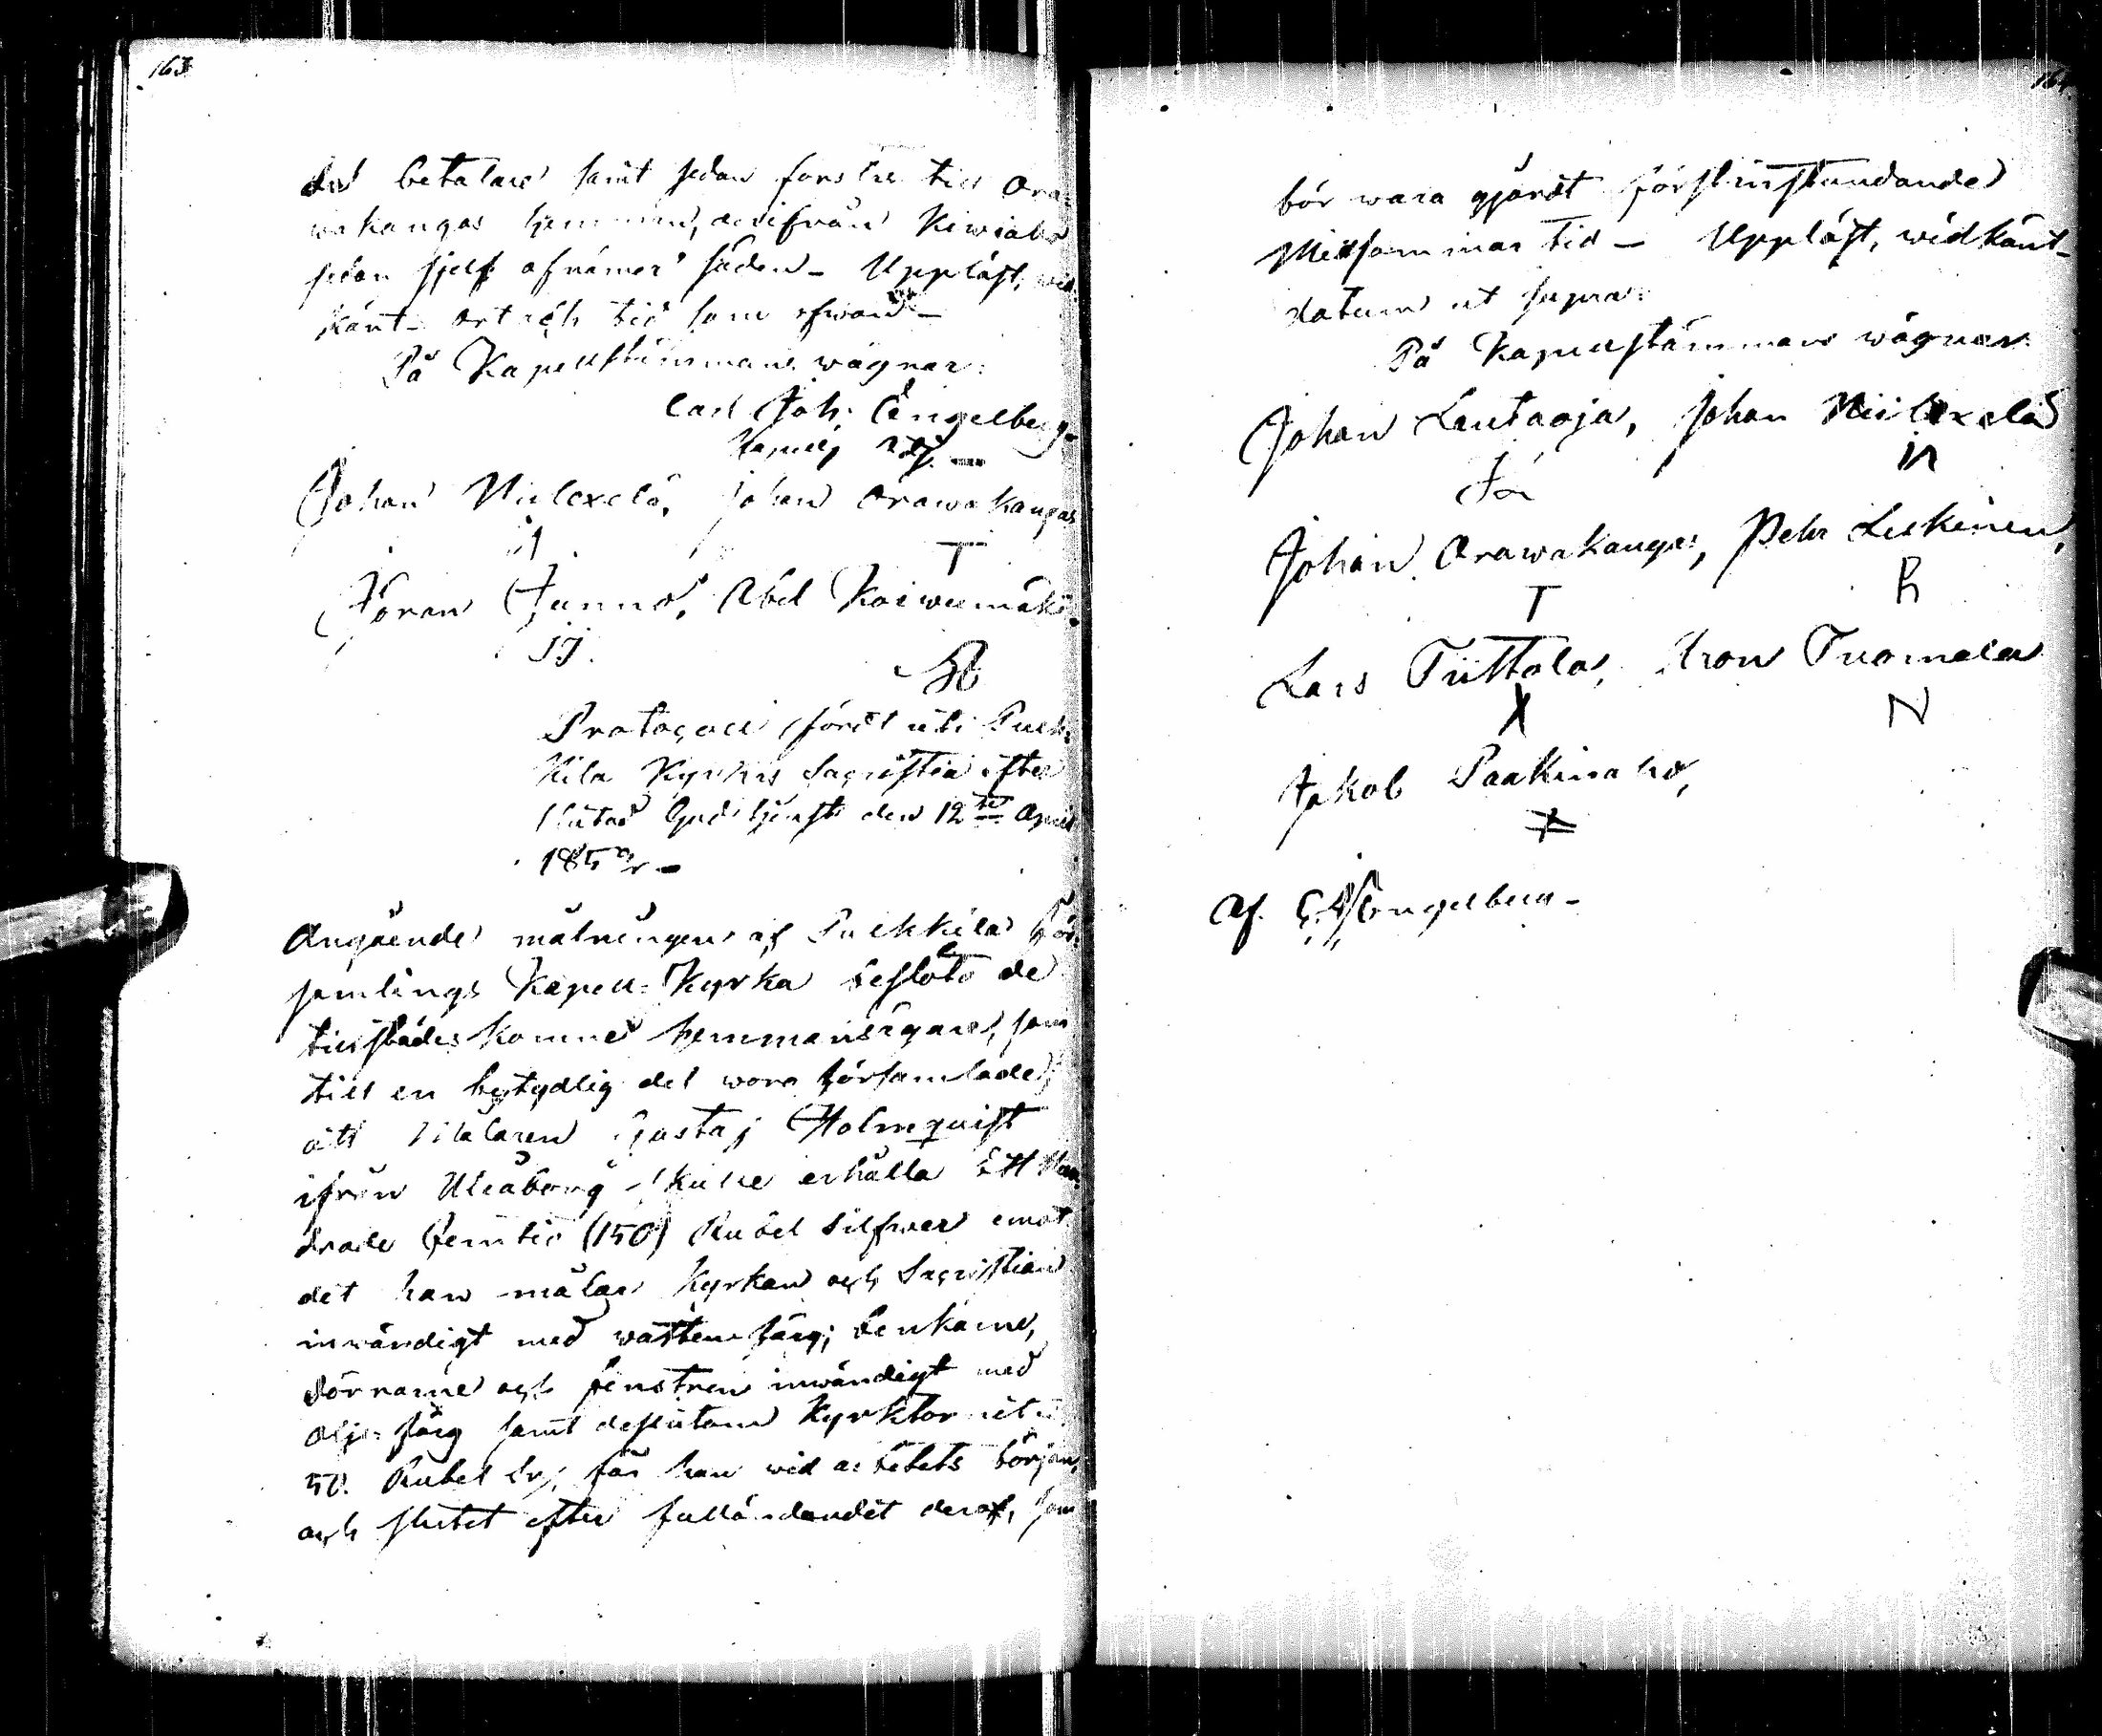 163
betalare samt sedan forslar till Ora-
wakangas hemman, derifrån Kiwiaho
sedan sjelf afhämer säden – Uppläst, wid-
känt – ort och tid som ofwan –
På Kapellstämmans wägnar:
Carl Joh: Engelberg
Johan Niilexelä, Johan Orawakangas
T
Jöran Junno, Abel Koiwumäki
JJ.
Protocoll fördt uti Puck-
kila Kyrkas Sacristia efter
slutad Gudstjenst den 12te April
Angående målningen af Puckkila För-
samlings Kapell-Kyrka beslöto de
tillstädes komne hemmansägare, som
till en betydlig del woro församlade,
att Målaren Gustaf Holmquist
ifrån Uleåborg skulle erhålla Ett Hun-
drade femtio (150) Rubel Silfwer emot
det han målar Kyrkan och Sacristian
inwändigt med watten färg; benkarne,
dörrarne och fenstren inwändigt med
olje-färg samt dessutom Kyrktornet
50. Rubel Sr, får han wid arbetets början,
och slutet efter fulländandet deraf, som
164.
bör wara gjordt förstinstundande
Midsommar tid – Uppläst, widkänt –
datum ut supra:
På Kapellstämmans wägnar:
Johan Lautaoja, Johan Niilexelä
Johan Orawakangas, Pehr Leskinen,
T
Lars Tiittola, Aron Tuomela
X N
Jakob Paakinaho,
Af. C. J. Engelberg –